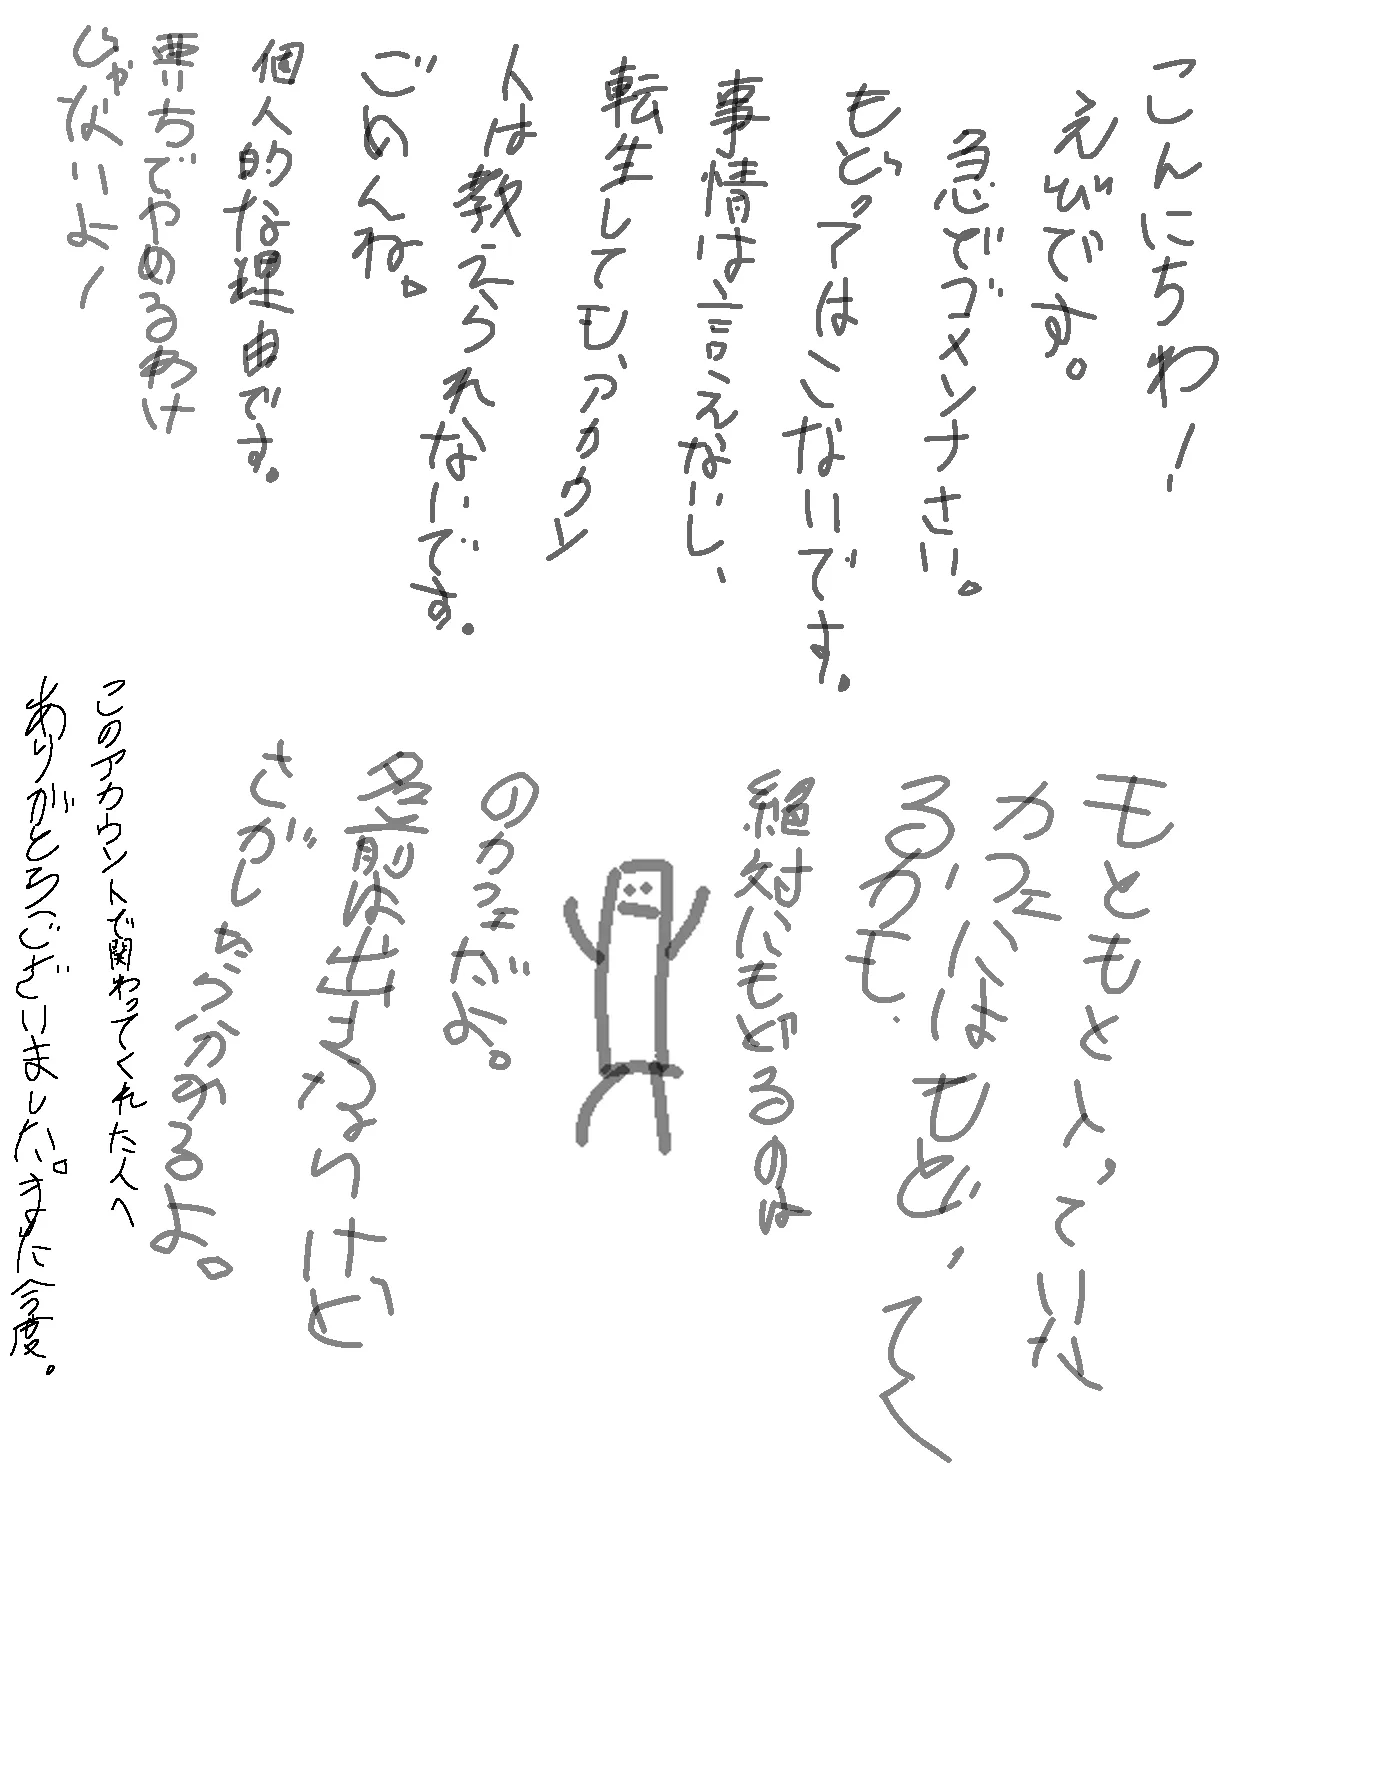 こんにちわ!
えびです。
急でゴメンナさい。
もどってはこないです。
事情は言えないし、
転生しても、アカウン
トは教えられないです。
ごめんね。
個人的な理由です。
垂れちでやめるわけ
じゃないよ!
もともと入っていた
カフェにはもどって
るかも.
絶対にもどるのは
のカフェだよ。
名前は出さないけど
さがしたらわかるよ。
このアカウントで関わってくれた人へ
ありがとうございました。また今度。